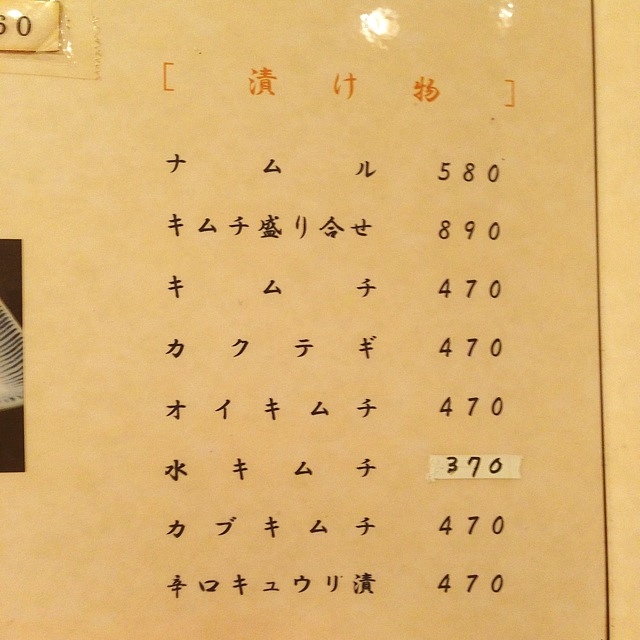 60
[ 漬け物 ]
ナムル 580
キムチ盛り合せ 890
キムチ 470
カクテギ 470
オイキムチ 470
水キムチ 370
カブキムチ 470
辛口キュウリ漬 470